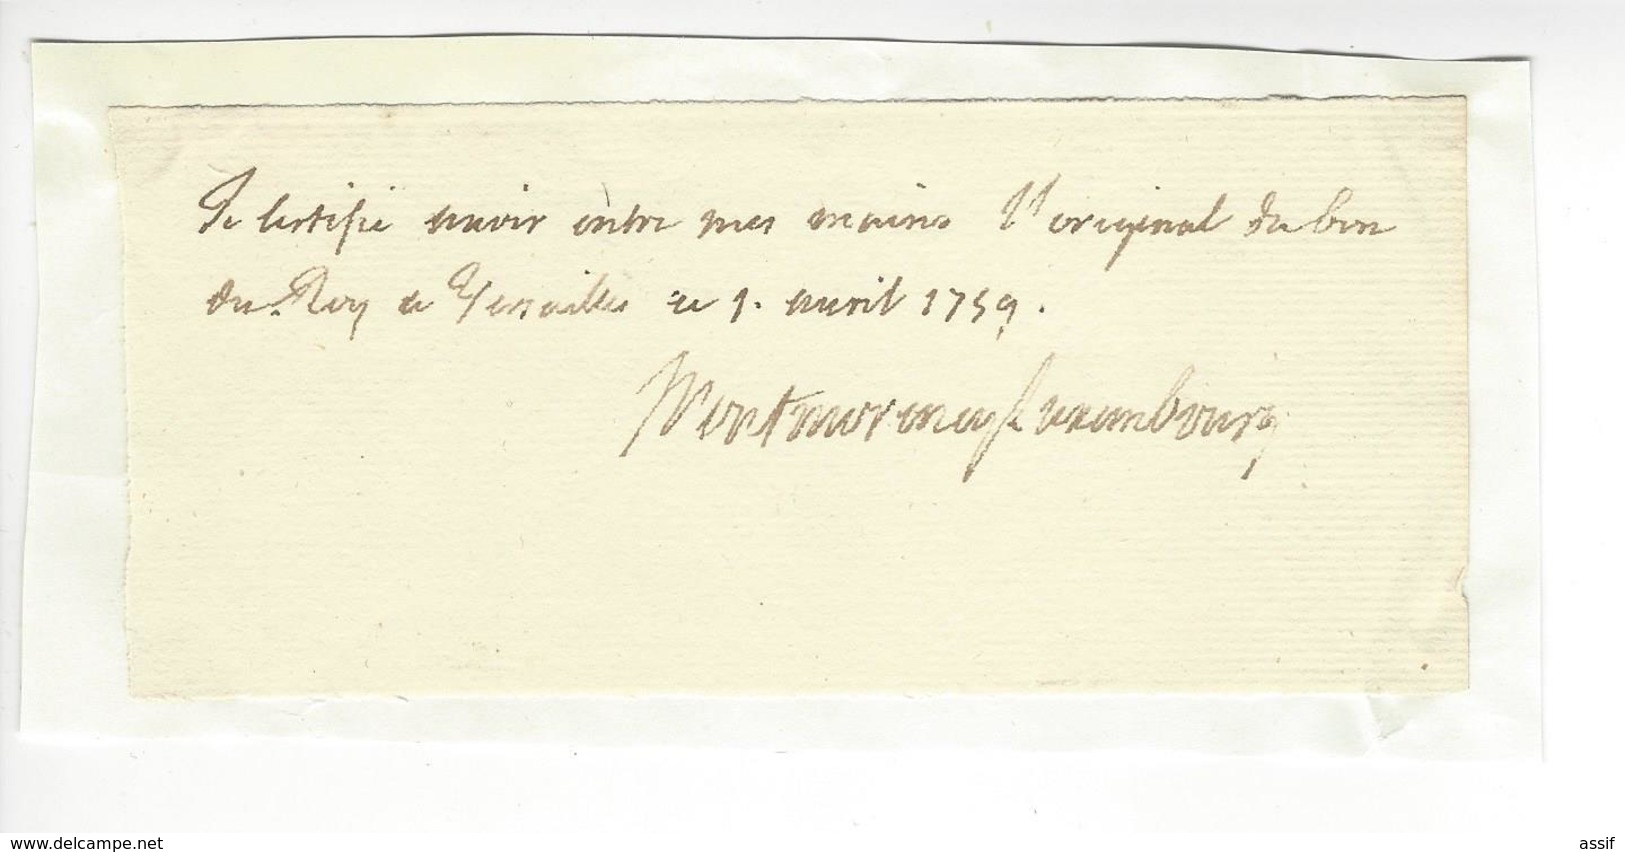 Je certifie avoir entre mes mains l'original du bon
du Roy a Versailles ce 1. avril 1759.
Montmorency Luxembourg
www.delcampe.net
assif